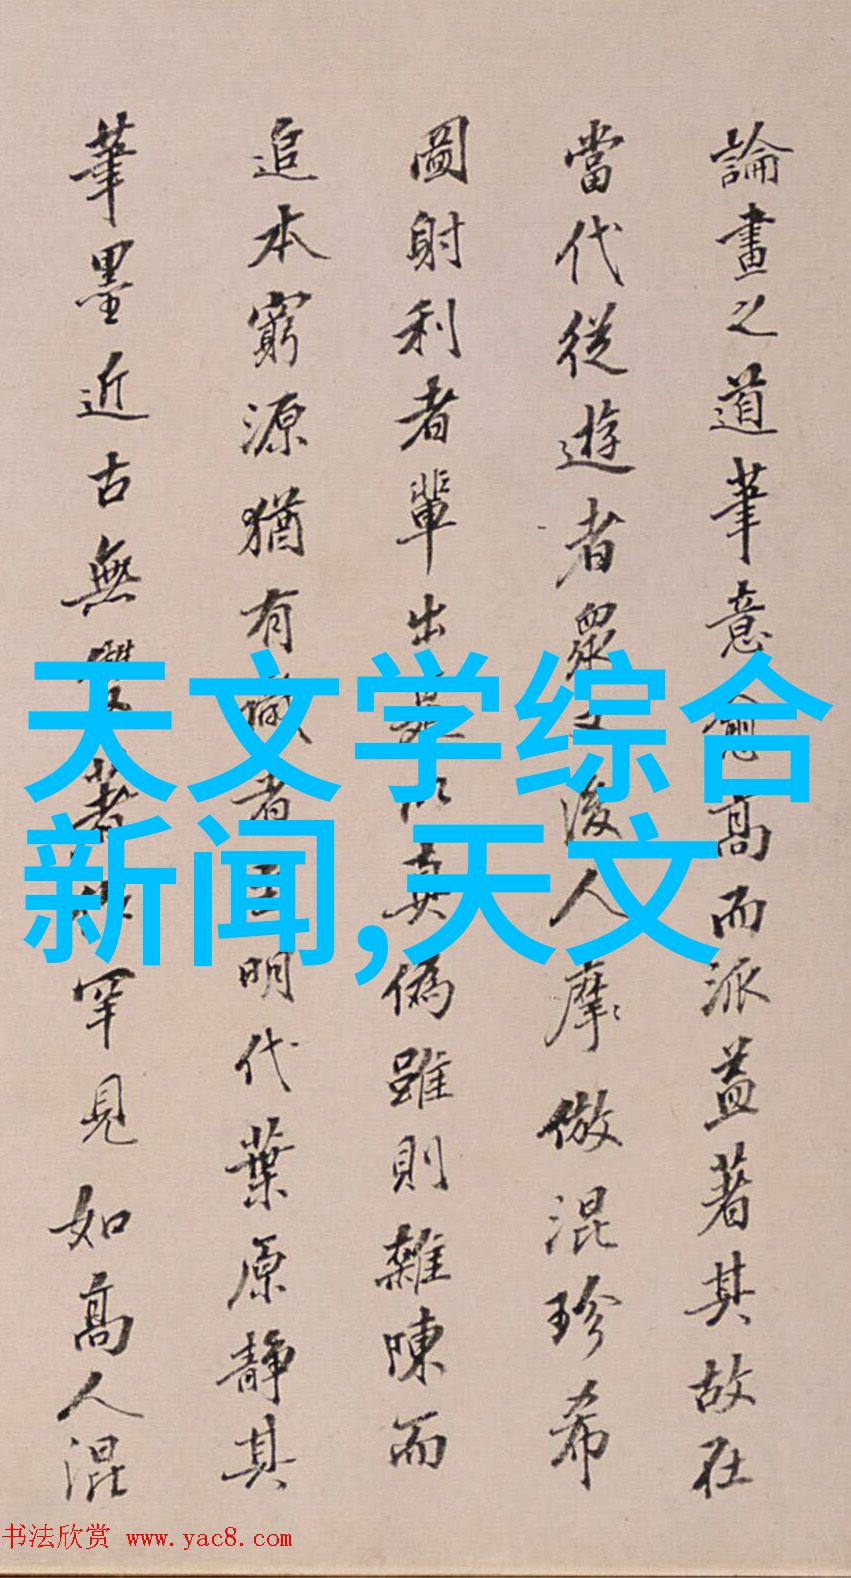 論畫之道筆意愈高而派益著其故在
當代從遊者眾又後人摩倣混珍希
圖射利者輩出是以真偽雖則雜陳而
追本窮源猶有識者 明代葉原静其
筆墨近古無雙著 罕見如高人混
天文学综合
新闻,天文
书法欣赏 www.yac8.com